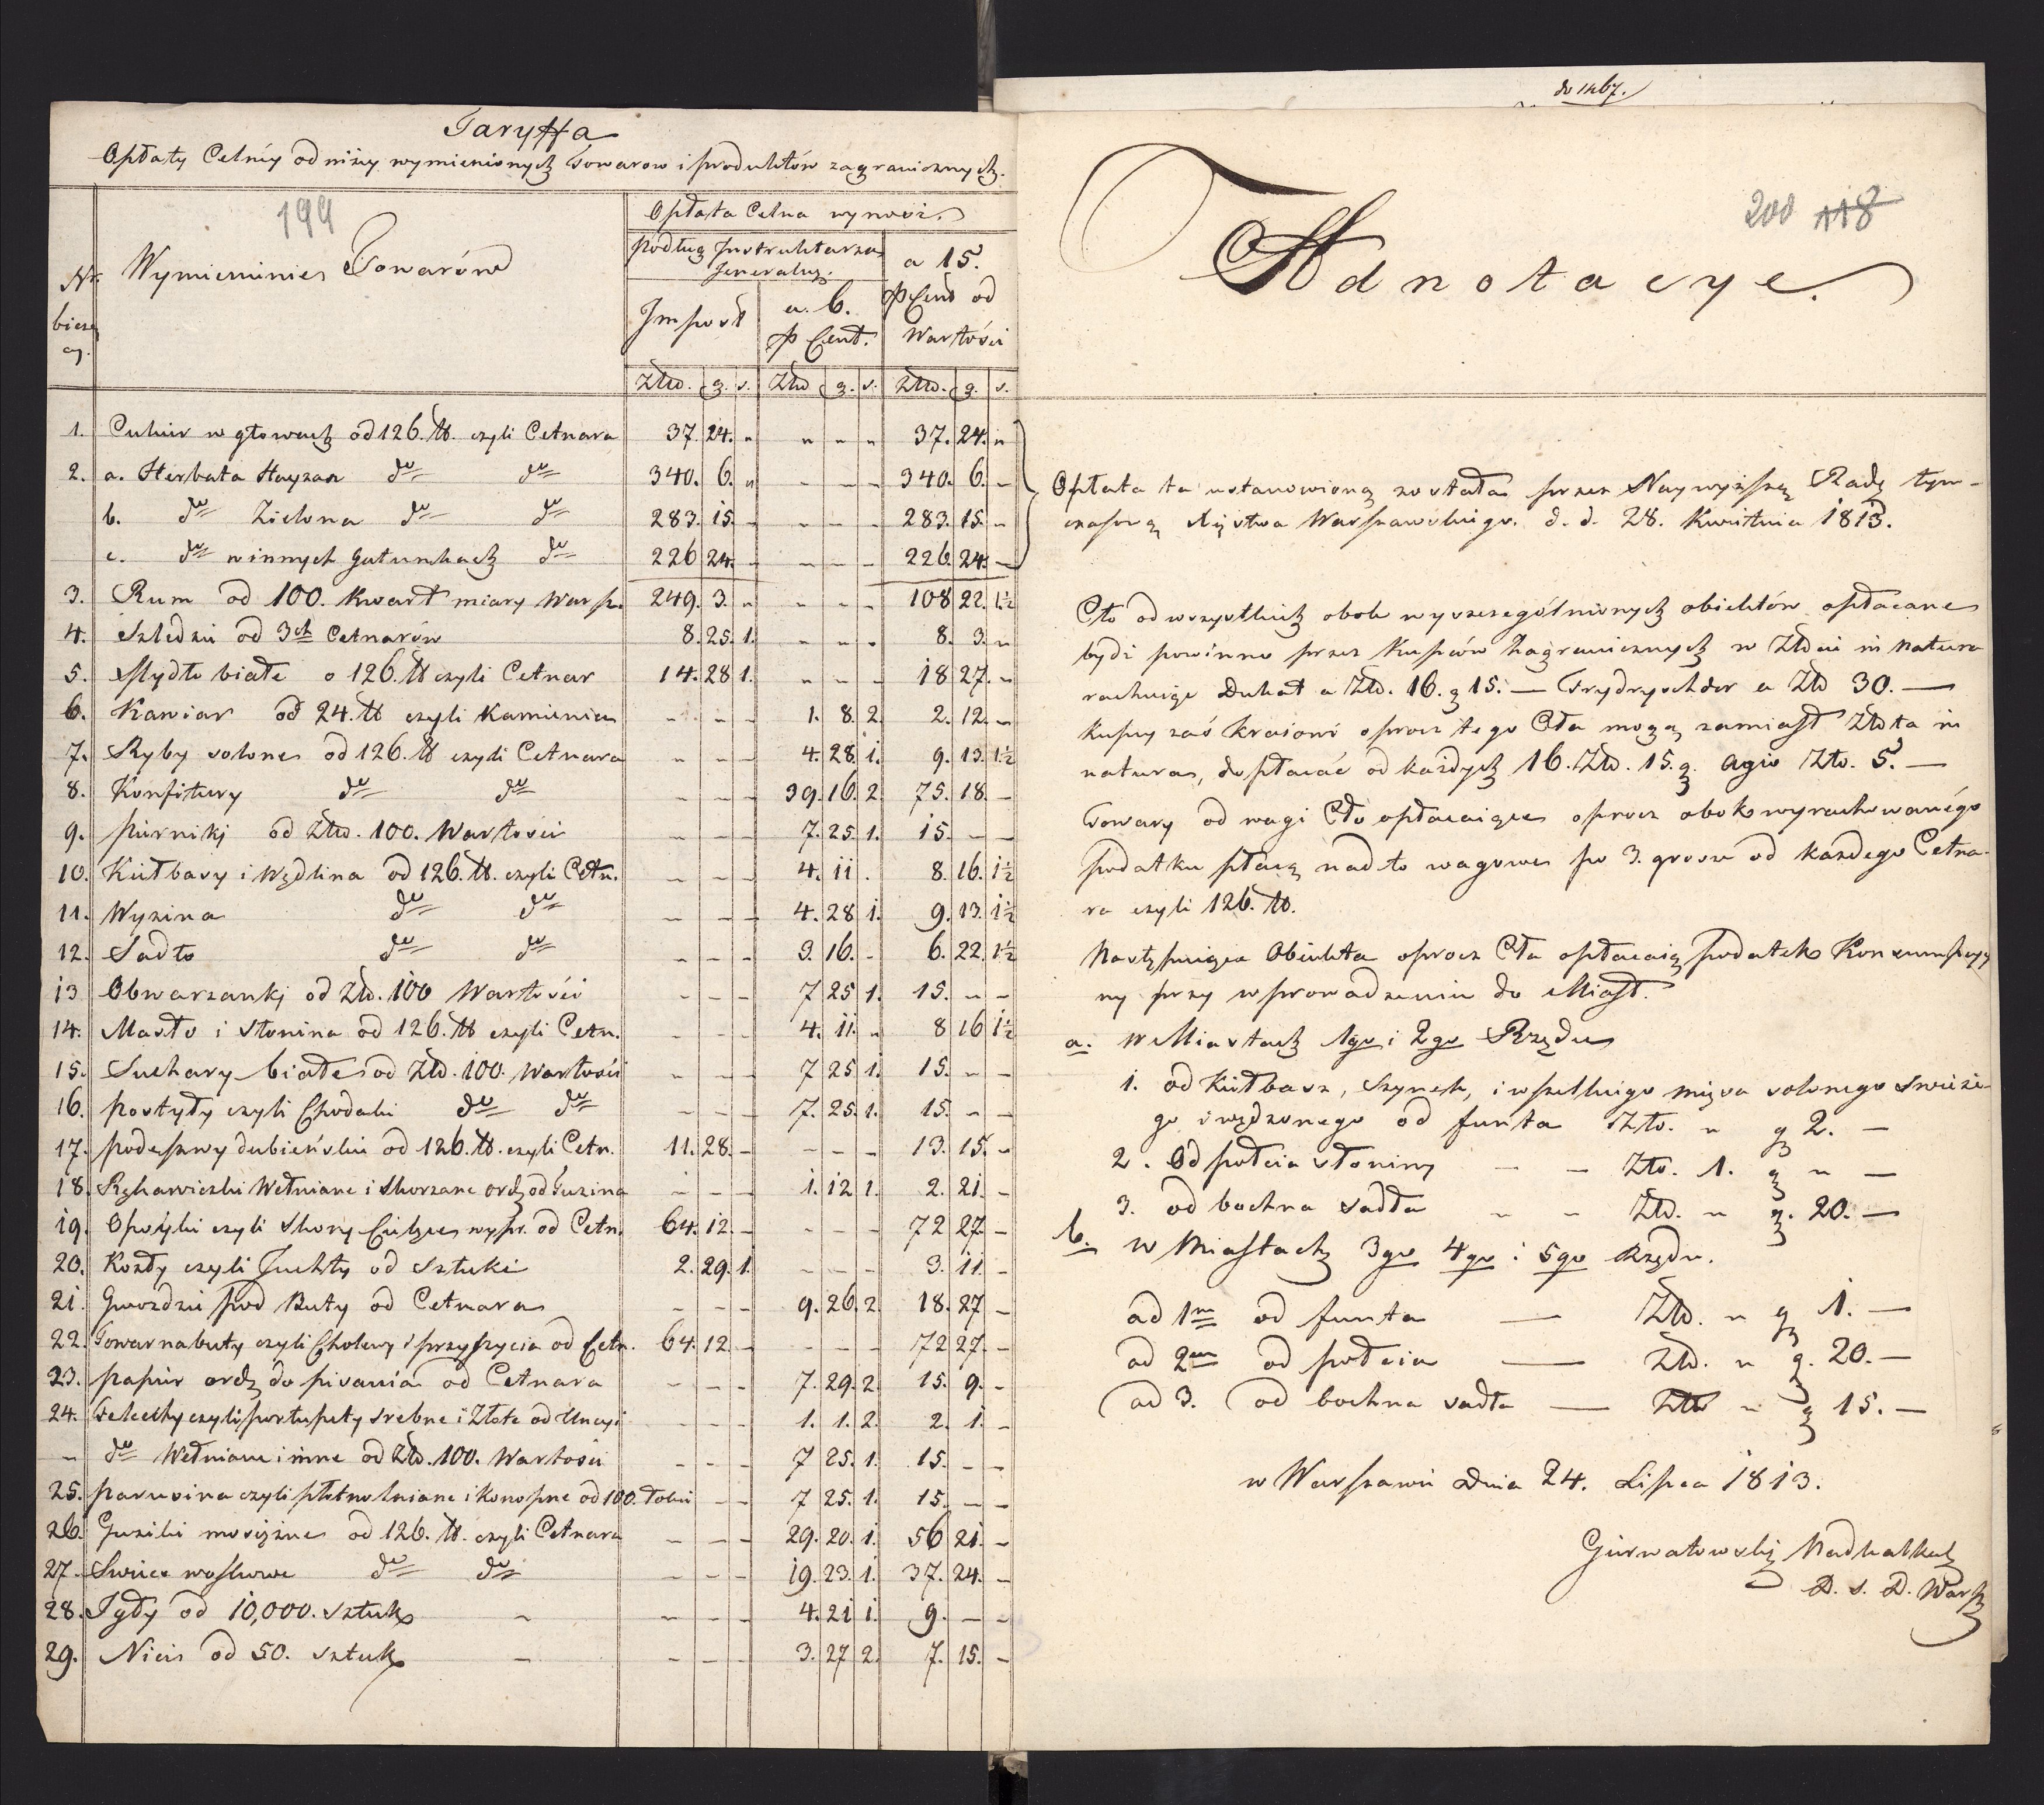 Taryffa
Opłaty Celnéy od niżey wymienionych Towarow i produktów zagranicznych.
199
Nr. bieżący.
Wymienienie Towarów
Opłata Celna wynosi.
podług Instruktarza Jeneralng.
a 15. PCent od Wartości
Impost
a. 6. P Cent.
Złto. g. s. Złto g. s. Złto. g. s.
1. Cukier w głowach od 126. ℔. czyli Cetnara 37. 24. " " " " 37. 24. "
2. a. Herbata Hayzan do do 340. 6. " - - - 340. 6. -
b. do Zielona do do 283. 15. - - - - 283. 15. -
c. do w innych gatunkach do 226 24. - - - - 226. 24. -
3. Rum od 100. Kwart miary Warsz. 249. 3. " - - - 108 22. 1½
4. Szledzie od 3ch Cetnarów 8. 25. 1. - - - 8. 3. "
5. Mydło białe o 126. ℔ czyli Cetnar 14. 28 1. - - - 18 27. -
6. Kawiar od 24. ℔ czyli Kamienia - - - 1. 8. 2. 2. 12. -
7. Ryby solone od 126. ℔ czyli Cetnara - - - 4. 28. 1. 9. 13. 1½
8. Konfitury do do - - - 39. 16. 2. 75. 18. -
9. pierniki od Złto. 100. Wartości - - - 7. 25. 1. 15. - -
10. Kiełbasy i Wędlina od 126. ℔. czyli Cetn. - - - 4. 11 . 8. 16. 1½
11. Wyzina do do - - - 4. 28 1. 9. 13. 1½
12. Sadło do do - - - 3. 16. - 6. 22. 1½
13 Obwarzanki od Złto. 100 Wartości - - - 7 25 1. 15. - -
14. Masło i Słonina od 126. ℔ czyli Cetn. - - - 4. 11. " 8 16 1½
15. Suchary białe od Złto. 100. Wartości - - - 7 25 1. 15. - -
16. postyły czyli Chodaki do do - - - 7. 25. 1. 15. - -
17. podeszwy dubieńskie od 126. ℔. czyli Cetn. 11. 28. - - - - 13. 15. -
18. Rękawiczki Wełniane i Skorzane ord. od Tuzina - - - 1. 12 1. 2. 21. -
19. Opoyki czyli Skory Cielęce wypr. od Cetn. 64. 12. - - - - 72 27. -
20. Kozły czyli Juchty od Sztuki 2. 29. 1. - - - 3. 11. -
21. Gwoździe pod Buty od Cetnara - - - 9. 26. 2. 18. 27 -
22. Towar na buty czyli Cholewy i przyszycia od Cetn. 64. 12. - - - - 72 27. -
23. papier ord. do pisania od Cetnara - - - 7. 29. 2. 15. 9. -
24. czyli portupety srebne i Złote od Uncyi - - - 1. 1. 2. 2. 1. -
" do Wełniane i inne od Złto. 100. Wartości - - - 7 25. 1. 15. - -
25. parusina czyli płótno lniane i Konopne od 100. Łokci - - 7 25. 1. 15. - -
26. Guziki mosiężne od 126. ℔. czyli Cetnara - - - 29. 20. 1. 56 21. -
27. Swiece woskowe do do - - - 19. 23. 1. 37. 24. -
28. Igły od 10,000. sztuk - - - - 4. 21 1. 9. - -
29. Nici od 50. sztuk - - - - 3. 27 2. 7. 15. -
do 1467.
200 118
Adnotacye.
Opłata ta ustanowioną została przez Naywyższą Radę tym-
czasową Xięstwa Warszawskiego. d. d. 28. Kwietnia 1813.
Cło od wszystkich obok wyszczególnionych obiektów opłacane
bydź powinno przez Kupców Zagranicznych w Złocie in natura
rachuiąc Dukat a Złto. 16. g 15. — Frydrychdor a Złto 30. —
Kupcy zaś kraiowi oprocz tego Cła mogą zamiast Złota in
natura, dopłacać od każdych 16. Złto. 15. g. agio Złto. 5. —
Towary od wagi Cło opłacaiące oprocz obok wyrachowanégo
podatku płacą nadto wagowe po 3. grosze od każdego Cetna-
ra czyli 126. ℔.
Następuiące Obiekta oprocz Cła opłacaią podatek Konsumpcyy
ny przy wprowadzeniu do Miast.
a. w Miastach 1go i 2go Rzędu
1. od Kiełbasz, Szynek, i wszelkiego mięsa solonego świeże-
go i wędzonego od funta Złto. " g 2. —
2. Od połcia słoniny — — Złto. 1. g " —
3. od bochna sadła " — Złto. " g. 20. —
b. w Miastach 3go 4go i 5go Rzędu.
ad 1m od funta — Złto. " g 1. —
ad 2um od połcia — Złto. " g. 20. —
ad 3. od bochna sadła — Złto " g 15. —
w Warszawie Dnia 24. Lipca 1813.
D. s. D. Warsz